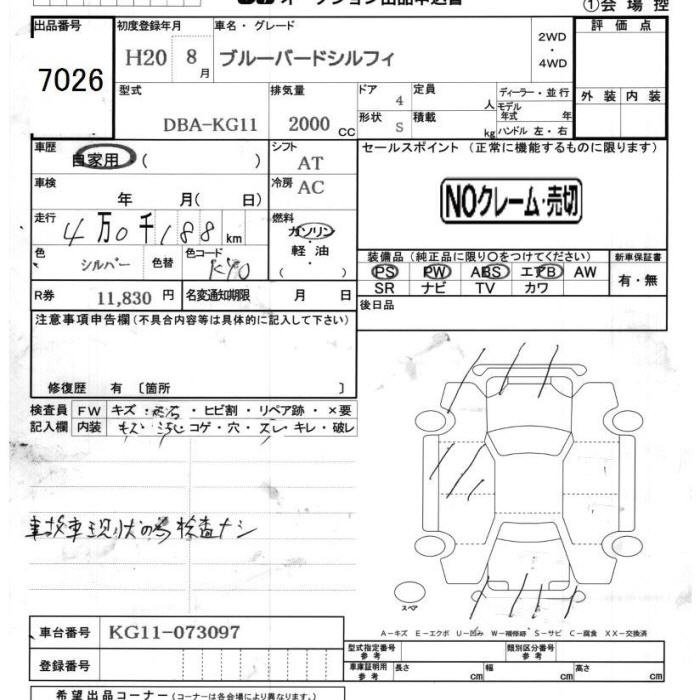 オークション出品申込書 ①会場控
出品番号 初度登録年月 車名・グレード 2WD・4WD 評価点
7026 H20 8月 ブルーバードシルフィ
型式 排気量 ドア 4 定員 人 ディーラー・並行 外装 内装
DBA-KG11 2000 CC 形状 S 積載 kg モデル年式 年
ハンドル 左・右
車歴 自家用 ( ) シフト AT セールスポイント (正常に機能するものに限ります)
車検 年 月( 日) 冷房 AC NOクレーム・売切
走行 4万0千188 km 燃料 ガソリン・軽油 ( )
色 シルバー 色替 色コード KY0 装備品 (純正品に限り○をつけてください) 新車保証書
PS PW ABS エアB AW 有・無
SR ナビ TV カワ
R券 11,830 円 名変通知期限 月 日 後日品
注意事項申告欄 (不具合内容等は具体的に記入して下さい)
修復歴 有 〔箇所 〕
検査員 FW キズ・ ・ヒビ割・リペア跡・×要
記入欄 内装 キズ コゲ・穴・スレ キレ・破レ
事故車現状の為検査ナシ
スペア
A−キズ E−エクボ U−凹み W−補修跡 S−サビ C−腐食 XX−交換済
車台番号 KG11-073097
登録番号
型式指定番号 参考 類別区分番号 参考
車庫証明用 参考 長さ cm 幅 cm 高さ cm
希望出品コーナー (コーナー名は各会場により異なります。)